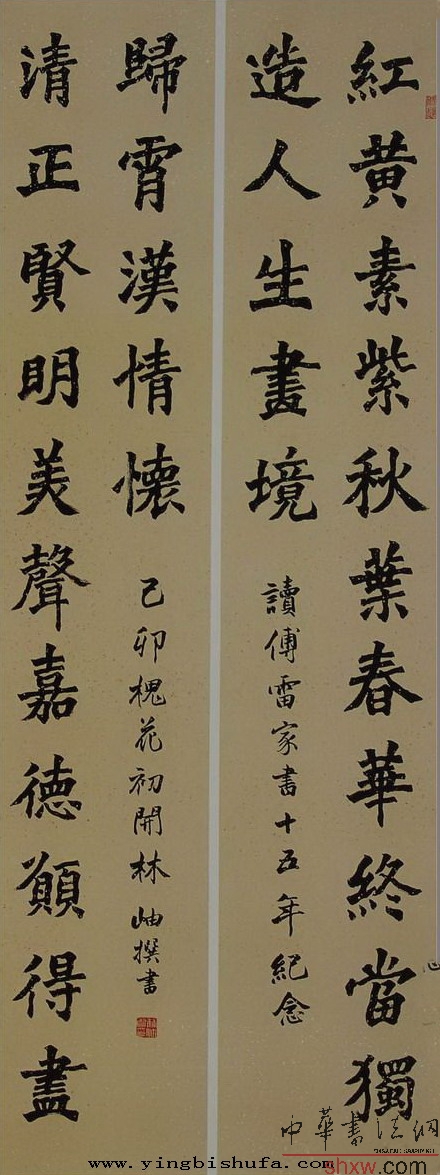 紅黃素紫秋葉春華終當獨
造人生畫境
讀傅雷家書十五年紀念
清正賢明美聲嘉德願得盡
歸霄漢情懷
己卯槐花初開林岫撰書
中華書法網
shxw.com
www.yingbishufa.com